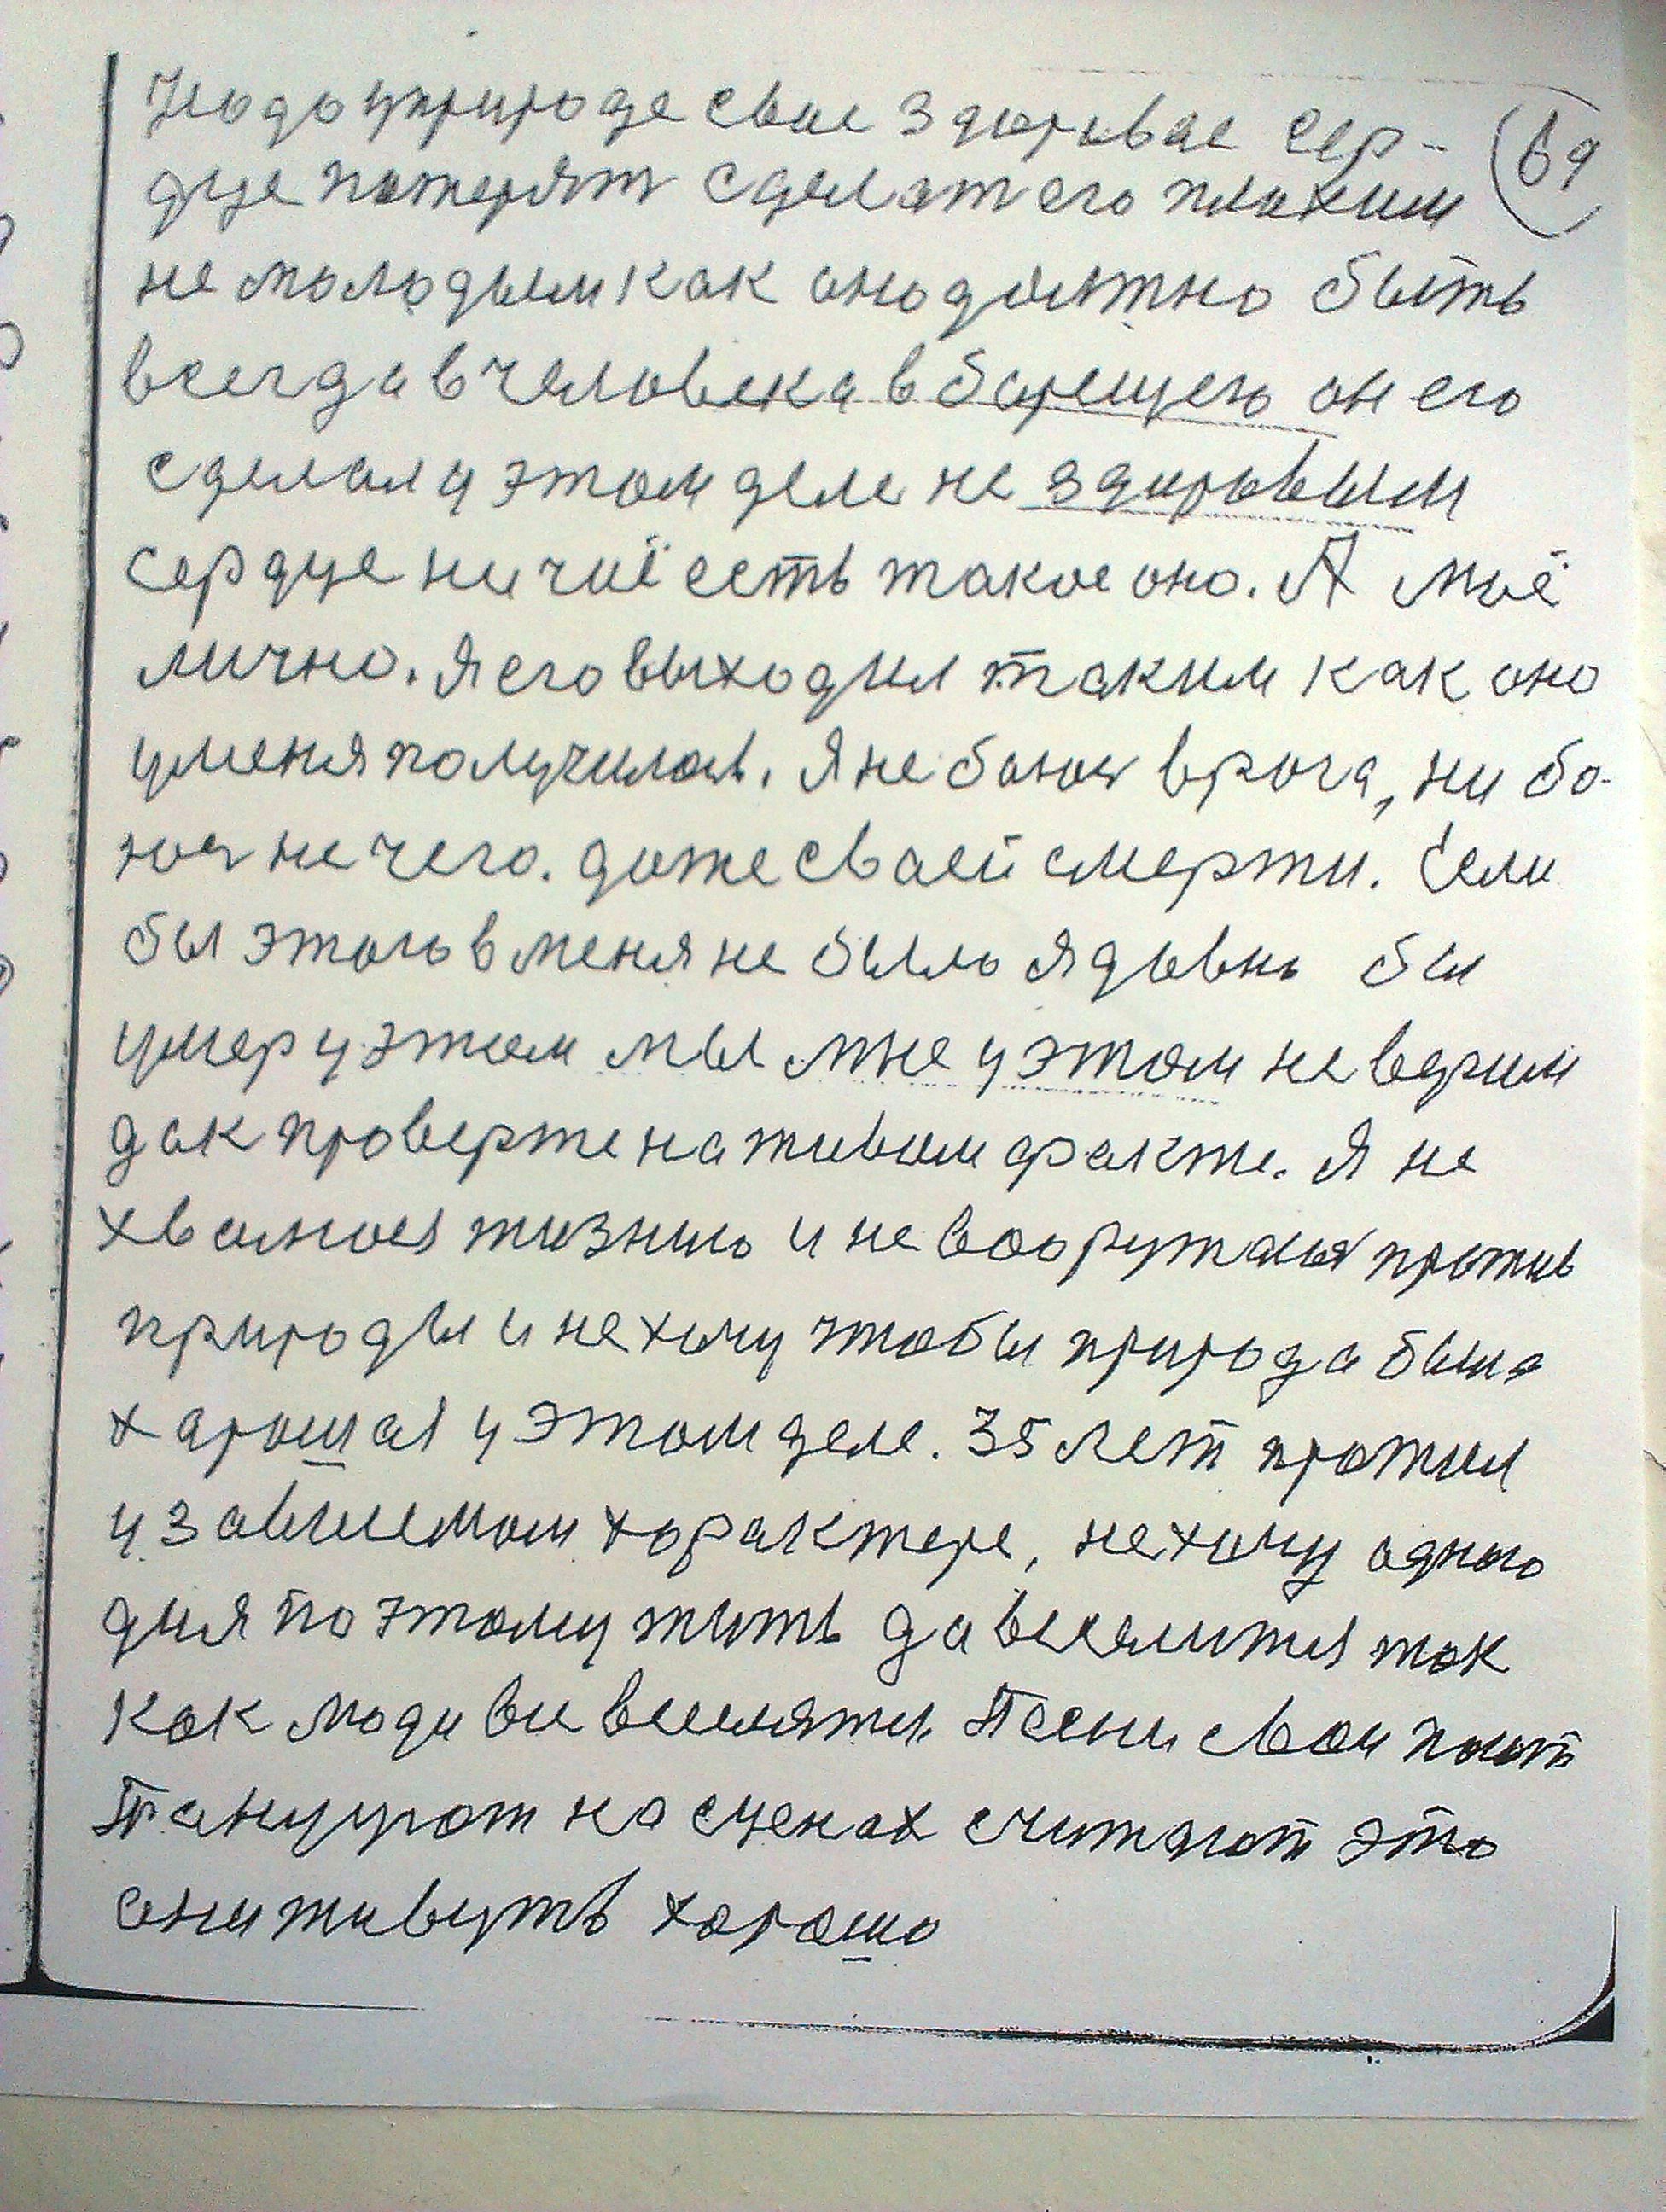 Надо уприроде свое здоровае сер-
69
дце потерят сделат его плохим
не молодым как оно должно быть
всегда в человека в борещего он его
сделал у этом деле не здоровым
сердце ни чиё есть такое оно. А моё
лично. Я его выходил таким как оно
уменя получилось. Я не боюся врага, ни бо-
юся не чего. даже сваей смерти. Если
бы этого в меня не было я давно бы
умер у этом мы мне у этом не верим
дак проверте на живом факте. Я не
хвалюся жизнию и не вооружаюся против
природы и не хочу чтобы природа была
харошая у этом деле. 35 лет прожил
у зависемом характере, не хочу одного
дня по этому жить да веселится так
как люди все веселятся. Песни свои поют
Танцуют на сценах считают это
они живуть хорошо